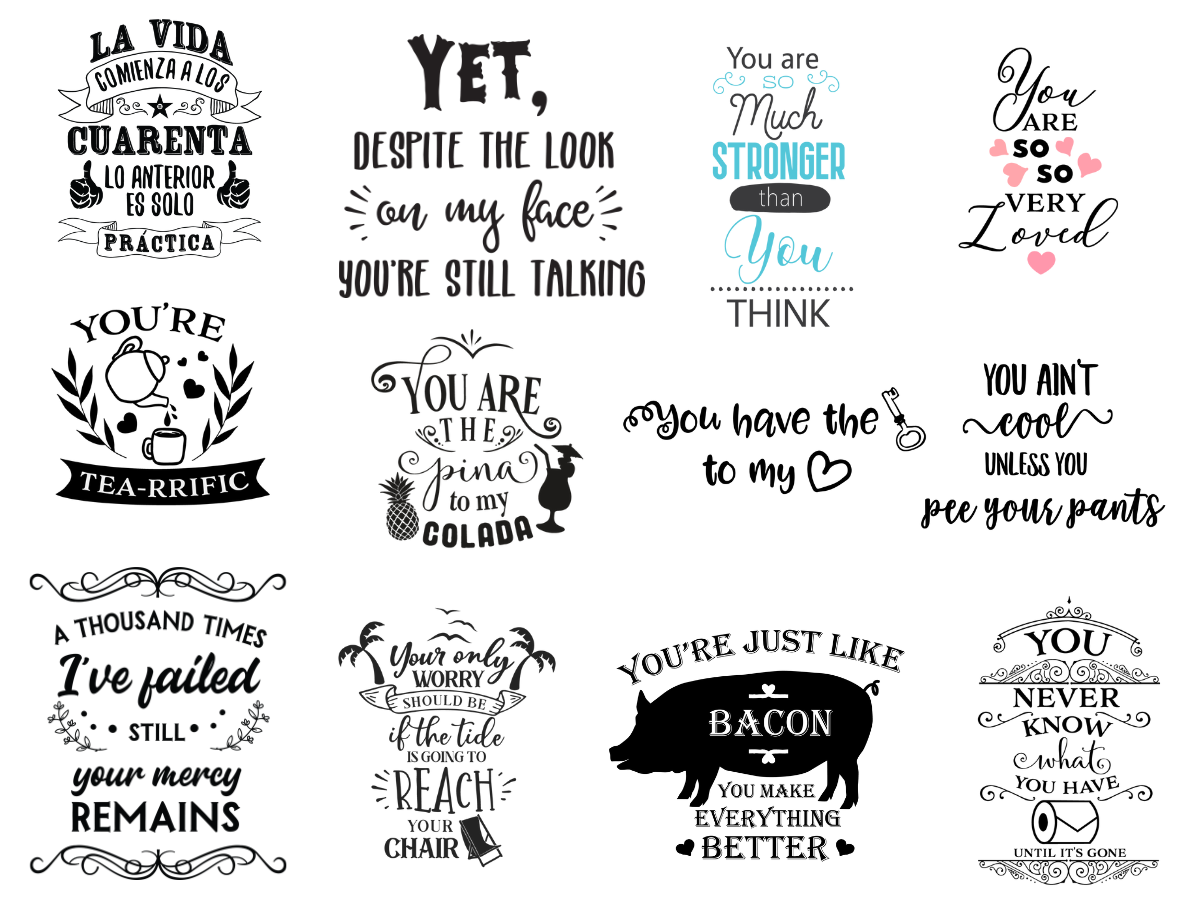 LA VIDA
COMIENZA A LOS
CUARENTA
LO ANTERIOR
ES SOLO
PRÁCTICA
YET,
DESPITE THE LOOK
on my face
YOU'RE STILL TALKING
You are
SO
Much
STRONGER
than
You
THINK
You
ARE
SO
SO
VERY
Loved
YOU'RE
TEA-RRIFIC
YOU ARE
THE
pina
to my
COLADA
You have the
to my
YOU AIN'T
cool
UNLESS YOU
pee your pants
A THOUSAND TIMES
I've failed
STILL
your mercy
REMAINS
Your only
WORRY
SHOULD BE
if the tide
IS GOING TO
REACH
YOUR
CHAIR
YOU'RE JUST LIKE
BACON
YOU MAKE
EVERYTHING
BETTER
YOU
NEVER
KNOW
what
YOU HAVE
UNTIL IT'S GONE